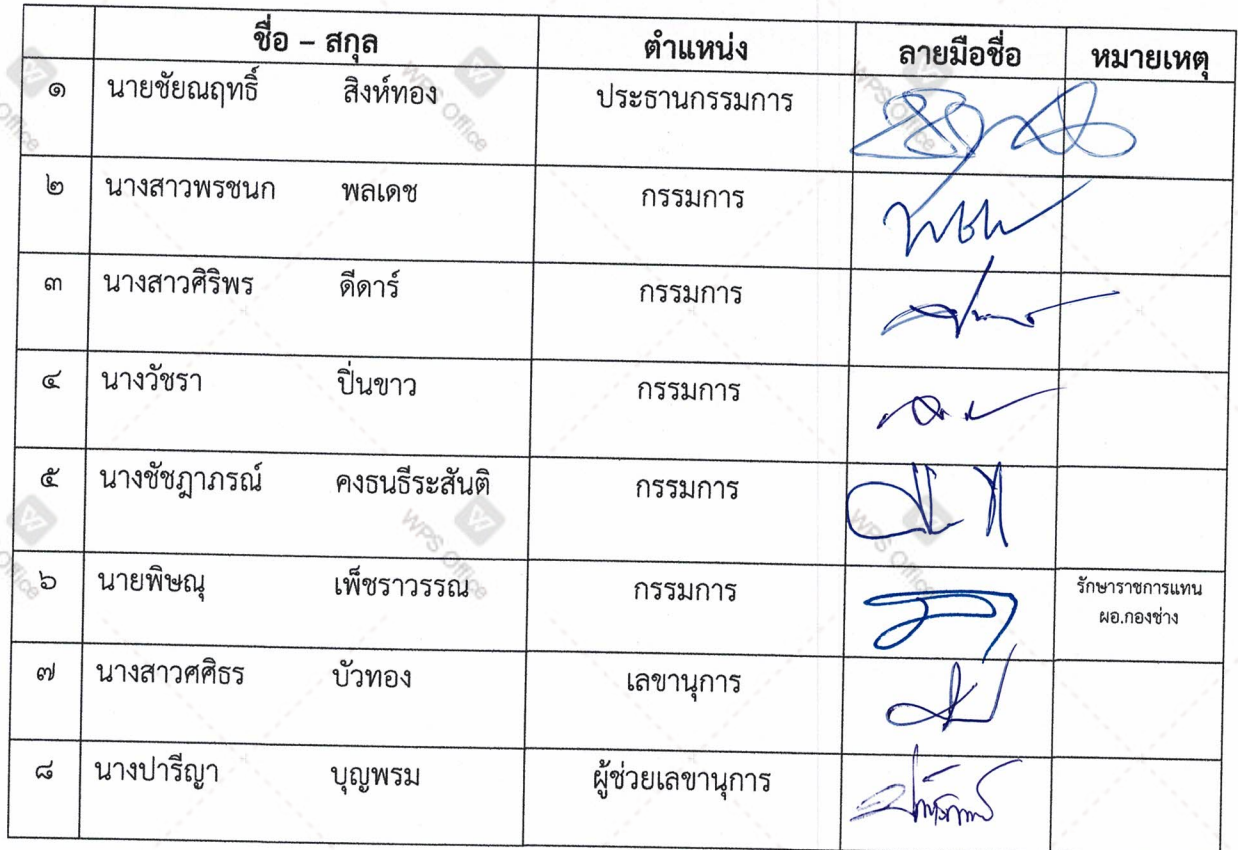 ชื่อ – สกุล ตำแหน่ง ลายมือชื่อ หมายเหตุ
๑ นายชัยณฤทธิ์ สิงห์ทอง ประธานกรรมการ
๒ นางสาวพรชนก พลเดช กรรมการ
๓ นางสาวศิริพร ดีดาร์ กรรมการ
๔ นางวัชรา ปิ่นขาว กรรมการ
๕ นางชัชฎาภรณ์ คงธนธีระสันติ กรรมการ
๖ นายพิษณุ เพ็ชราวรรณ กรรมการ รักษาราชการแทน
ผอ.กองช่าง
๗ นางสาวศศิธร บัวทอง เลขานุการ
๘ นางปารีญา บุญพรม ผู้ช่วยเลขานุการ
WPS Office
WPS Office
WPS Office
WPS Office